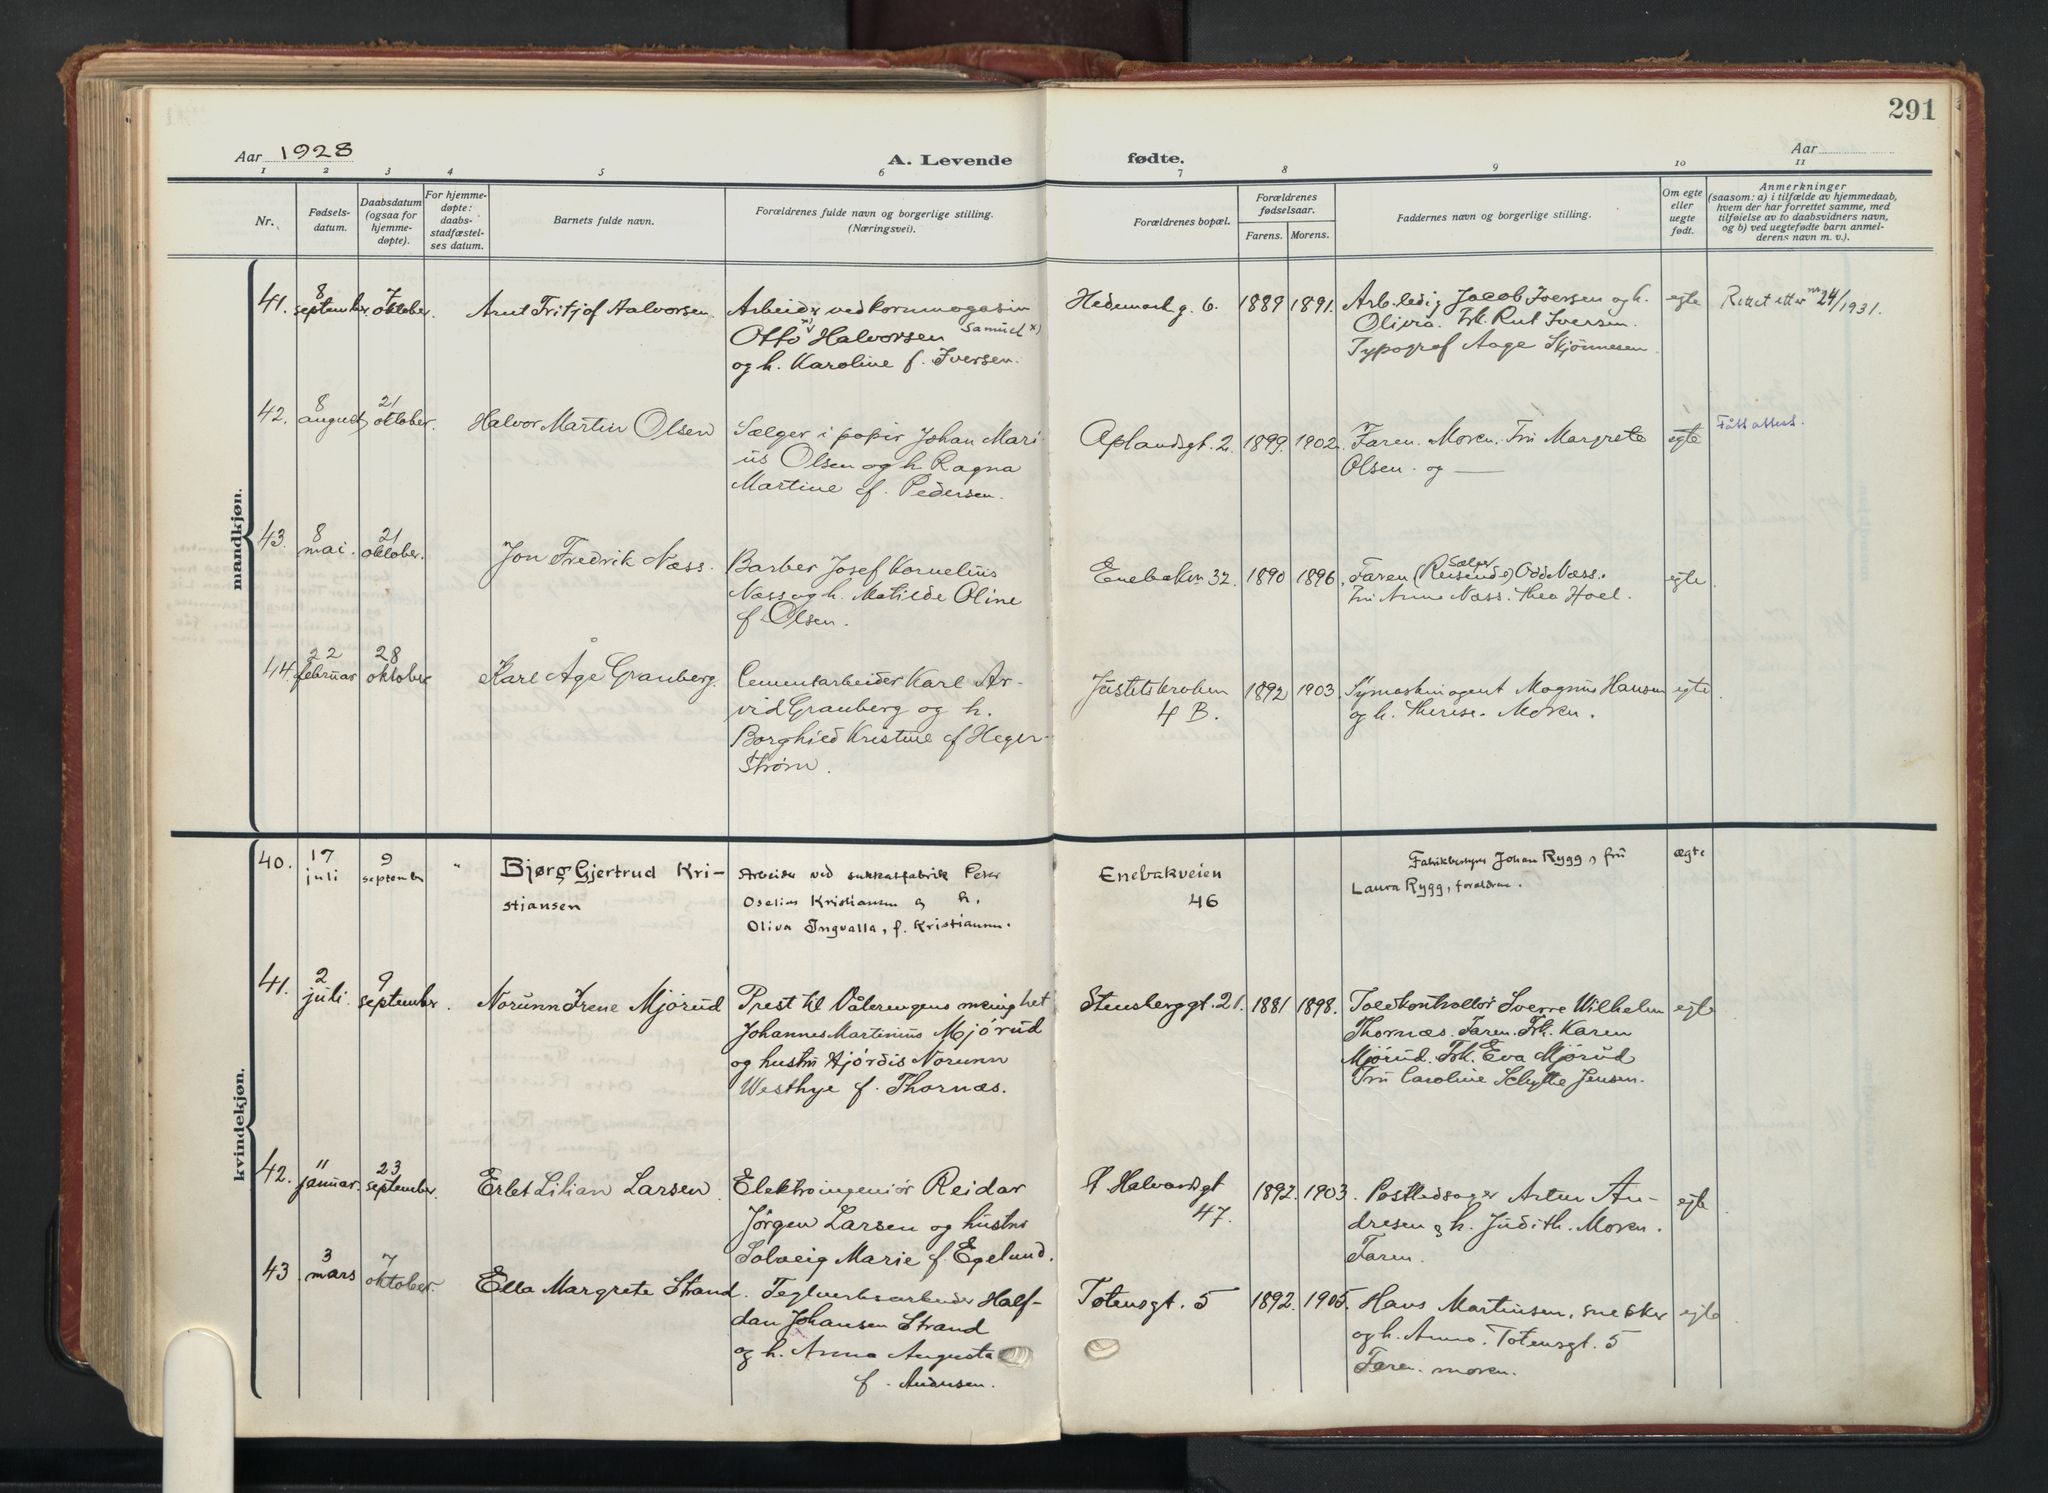 291
Aar 1928
A. Levende
fødte.
Aar
1 2 3 4 5 6 7 8 9 10 11
Nr.
Fødsels-
datum.
Daabsdatum
(ogsaa for
hjemme-
døpte).
For hjemme-
døpte:
daabs-
stadfæstel-
ses datum.
Barnets fulde navn.
Forældrenes fulde navn og borgerlige stilling.
(Næringsvei).
Forældrenes bopæl.
Forældrenes
fødselsaar.
Farens. Morens.
Faddernes navn og borgerlige stilling.
Om egte
eller
uegte
født.
Anmerkninger
(saasom: a) i tilfælde av hjemmedaab,
hvem der har forrettet samme, med
tilføielse av to daabsvidners navn,
og b) ved uegtefødte barn anmel-
derens navn m. v.).
mandkjøn.
41.
8
september
7
oktober.
Arnt Fritjof Halvorsen.
Arbeider ved kornmagasin
Otto x) Halvorsen Samuel x)
og h. Karoline f. Iversen.
Hedemark g. 6.
1889 1891.
Arb.ledig Jacob Iversen og h.
Olivia. Frk. Rut Iversen.
Typograf Aage Skjönnesen.
egte
Rettet etter nr 24/1931.
42.
8
august
21
oktober.
Halvor Martin Olsen
Sælger i papir Johan Mari-
us Olsen og h. Ragna
Martine f. Pedersen.
Oplandsgt. 2.
1899. 1902.
Faren. Moren. Fru Margrete
Olsen. og —
egte
Fått attest.
43.
8
mai.
21
oktober.
Jon Fredrik Næss.
Barber Josef Kornelius
Næss og h. Matilde Oline
f. Olsen.
Enebakv 32.
1890 1896.
Faren (Reisende) Odd Næss.
Fru Anna Næss. Thea Hoel.
egte
44.
22
februar
28
oktober
Karl Åge Granberg.
Cementarbeider Karl Ar-
vid Granberg og h.
Borghild Kristine f Heger-
strøm.
4 B.
1892 1903.
Symaskinagent Magnus Hansen
og h. Therese. Moren.
egte
kvindekjøn.
40.
17
juli
9
september
"
Bjørg Gjertrud Kri-
stjansen
Arbeider ved sukkasfabrik Peter
Oselius Kristiansen og h.
Oliva Ingvalla, f. Kristiansen.
Enebakveien
46
Fabrikbestyrer Johan Rygg, fru
Laura Rygg, foreldrene.
ægte
41.
2
juli.
9
september.
Norunn Irene Mjörud
Prest til Vålerengens menighet
Johannes Martinius Mjörud
og hustru Hjördis Norunn
Westhye f. Thornæs.
Stensberggt. 21.
1881 1898.
Toldkontrollör Sverre Wilhelm
Thornæs. Faren. Frk. Karen
Mjörud. Frk. Eva Mjörud
Fru Caroline Schytte Jensen.
egte
42.
11
januar.
23
september.
Erlet Lilian Larsen.
Elektroingeniör Reidar
Jörgen Larsen og hustru
Solveig Marie f. Egelund.
St Halvardsgt
47.
1892. 1903.
Postledsager Artur An-
dresen og h. Judith. Moren.
Faren.
egte
43.
3
mars
7
oktober.
Ella Margrete Strand.
Teglverksarbeider Half-
dan Johansen Strand
og h. Anna Augusta
f. Andersen.
Totensgt. 5
1892. 1905.
Hans Martinsen, snekker
og h. Anna. Totensgt. 5
Faren. moren.
egte